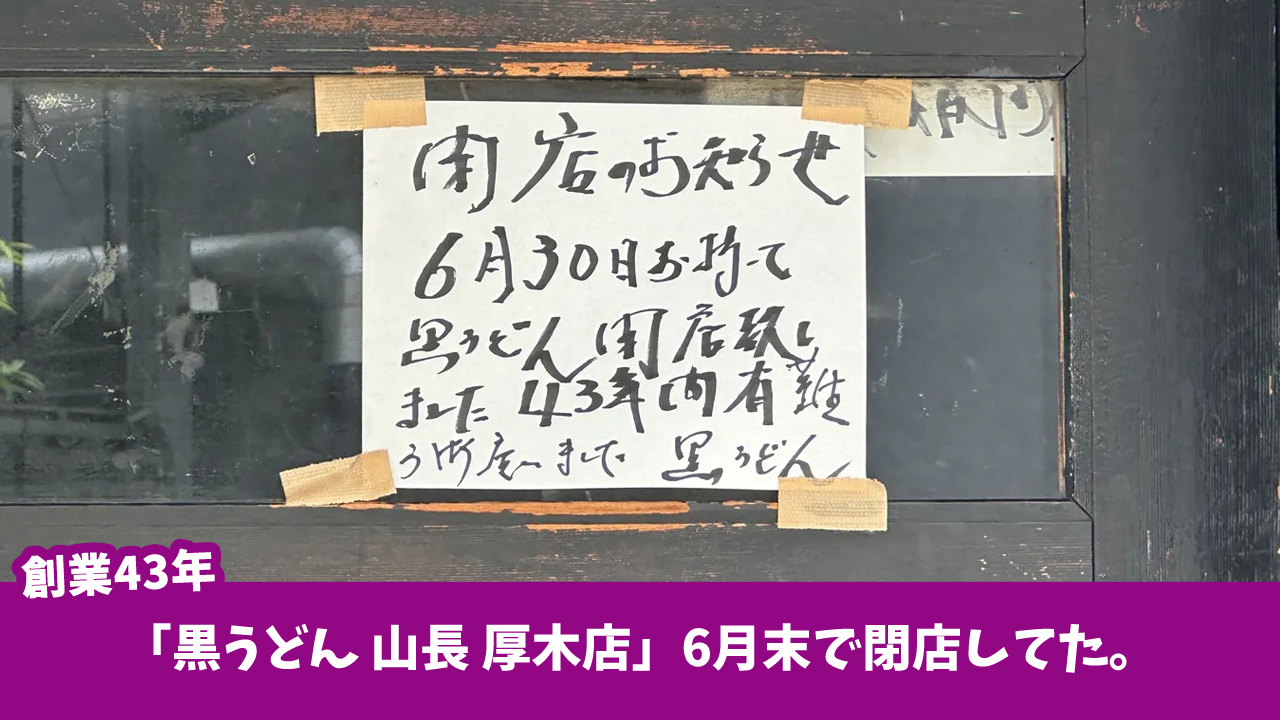 閉店のお知らせ
6月30日お持って
黒うどん閉店致し
ました 43年間有難
う御座いました 黒うどん
創業43年
「黒うどん 山長 厚木店」6月末で閉店してた。